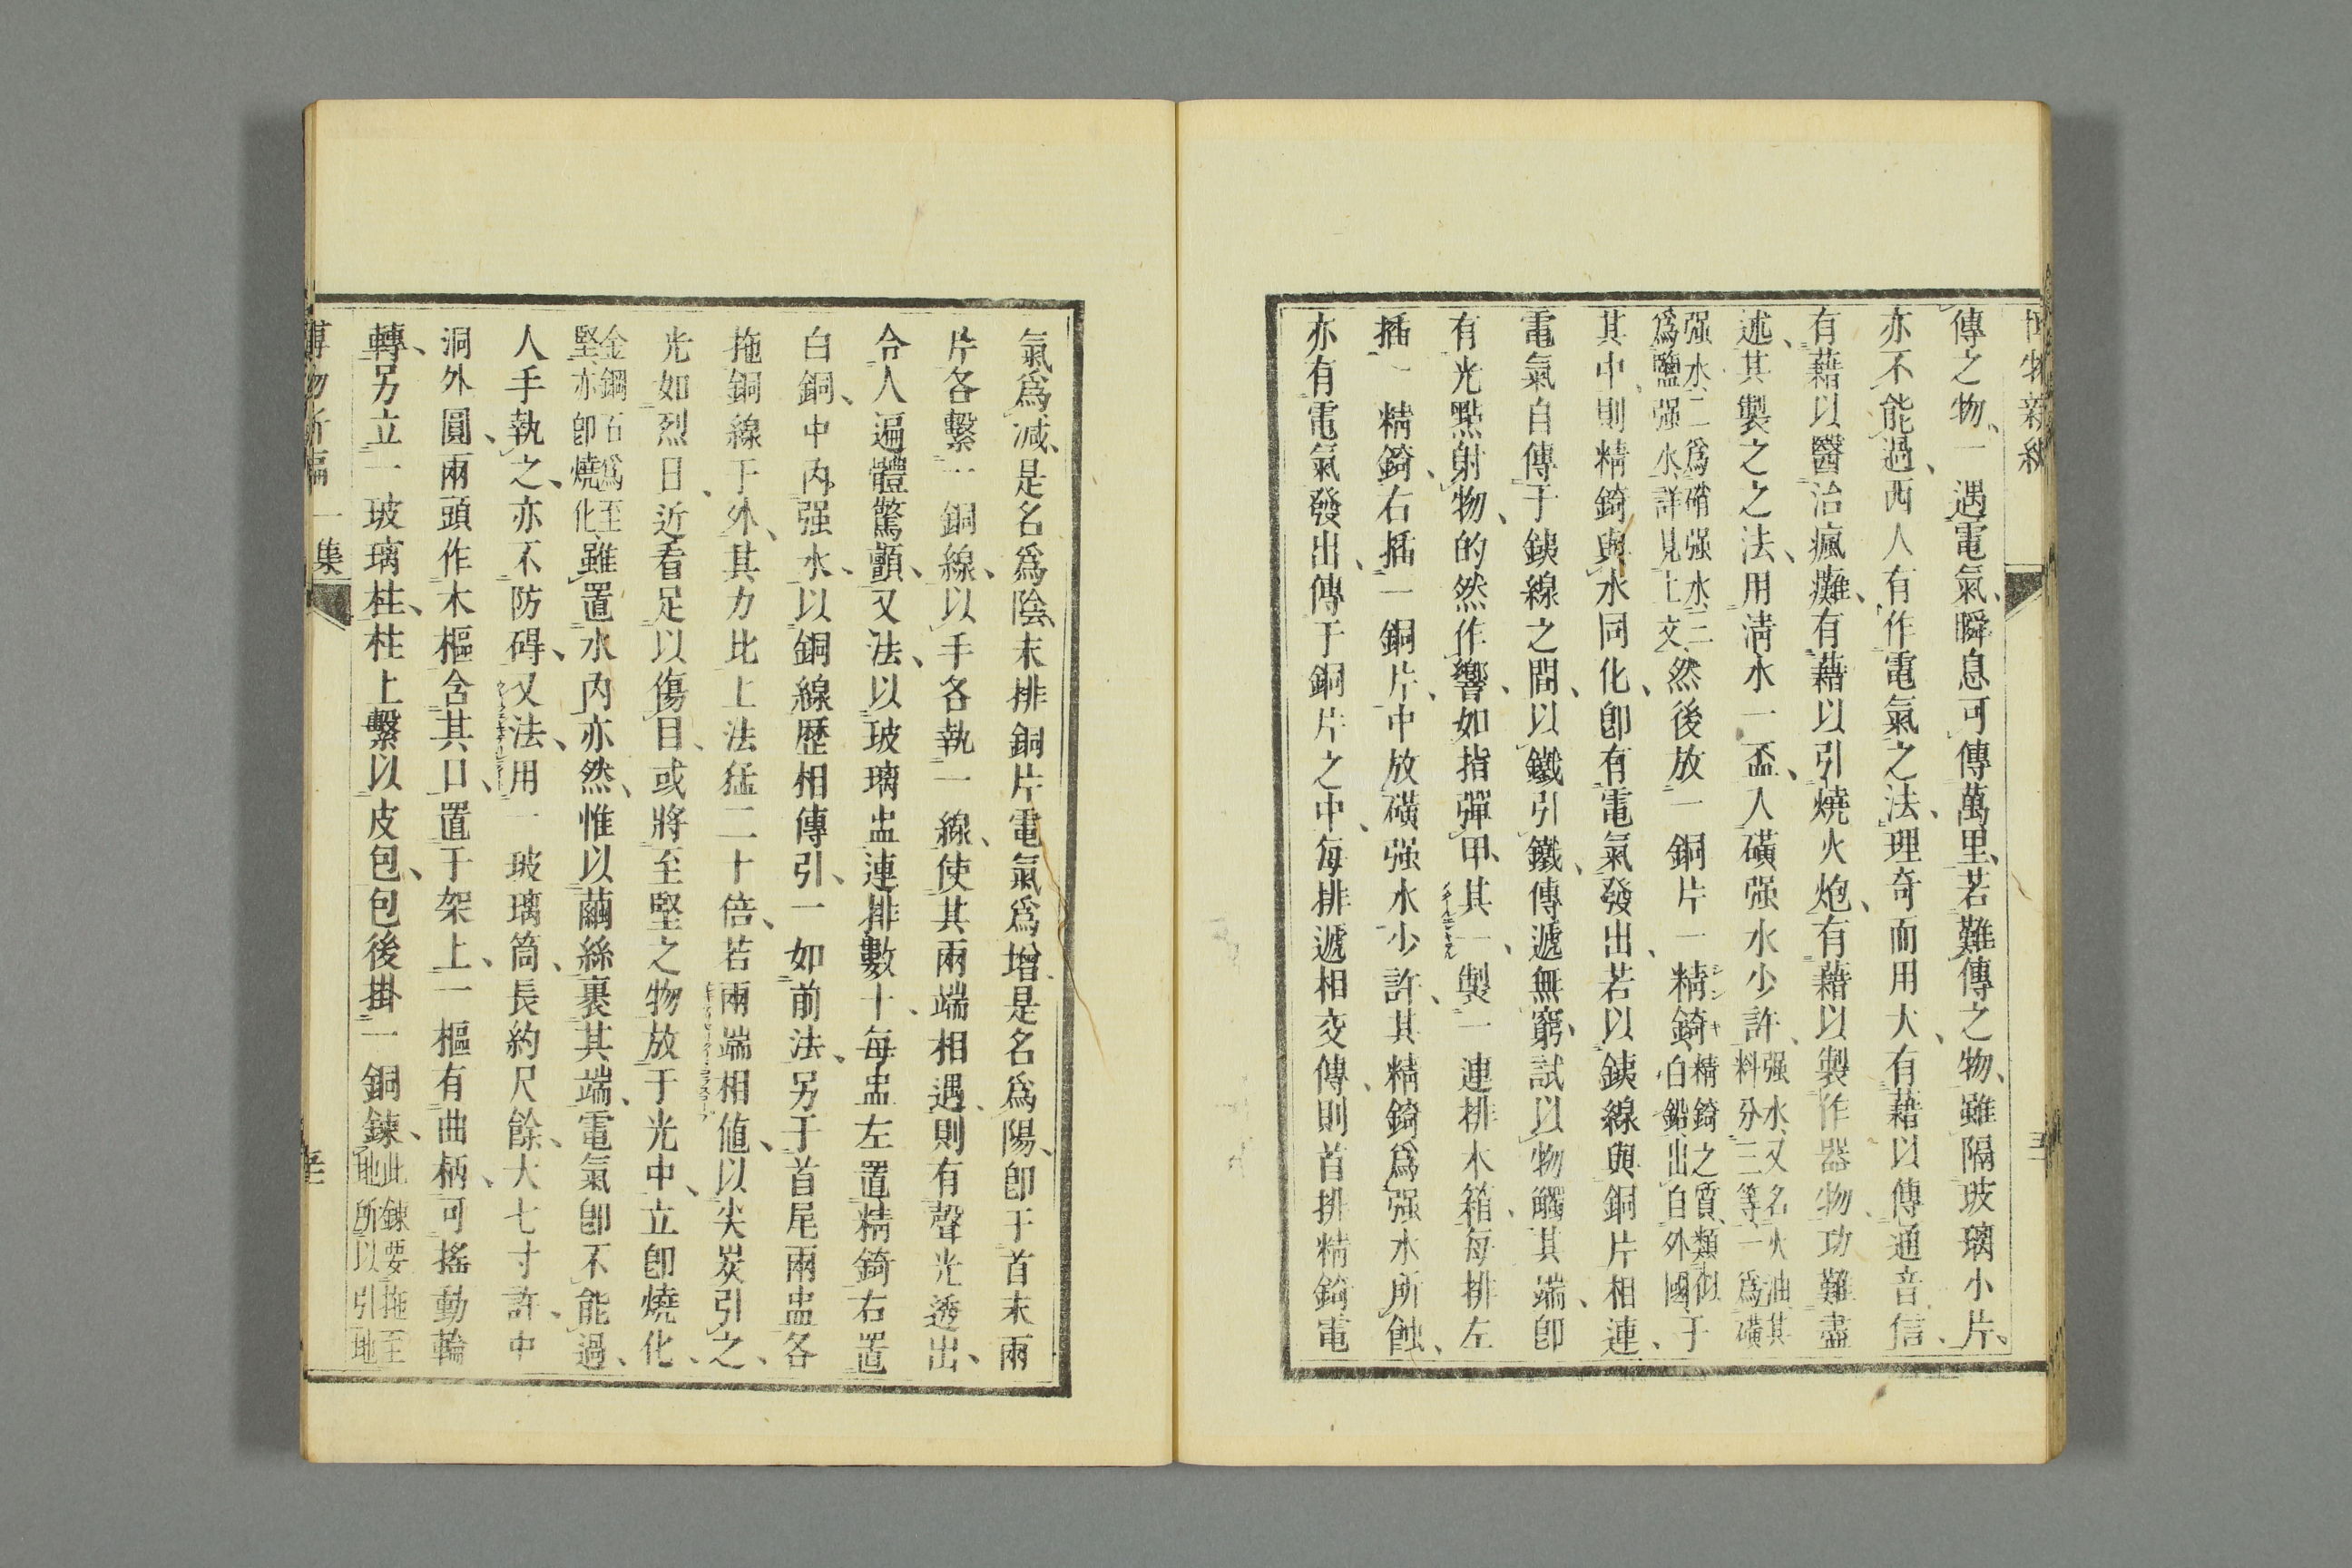 博物新編
傳之物、一遇電氣、瞬息可傳萬里、若難傳之物、雖隔玻璃小片、
亦不能過、西人有作電氣之法、理奇而用大、有藉以傳通音信、
有藉以醫治瘋癱、有藉以引燒火炮、有藉以製作器物、功難盡
述、其製之之法、用淸水一盃、人磺强水少許、
强水又名火油其
料分三等一爲磺
强水、二爲硝强水、三
爲鹽强水、詳見上文、
然後放一銅片一精錡、
シンキ
精錡之質、類似
白鉛、出自外國、
于
其中、則精錡與水同化、卽有電氣發出、若以銕線與銅片相連、
電氣自傳于銕線之間、以鐵引鐵、傳遞無窮、試以物觸其端、卽
有光點射物、的然作響、如指彈甲、其一、製一連排木箱、每排左
插一精錡、右插一銅片、中放磺强水少許、其精錡爲强水所蝕、
亦有電氣發出、傳于銅片之中、每排遞相交傳、則首排精錡電
氣爲减、是名爲陰、末排銅片電氣爲增、是名爲陽、卽于首末兩
片各繫一銅線、以手各執一線、使其兩端相遇、則有聲光透出、
令人遍體驚顫、又法、以玻璃盅連排數十、每盅左置精錡右置
白銅、中內强水、以銅線歷相傳引、一如前法、另于首尾兩盅各
拖銅線于外、其力比上法猛二十倍、若兩端相値、以尖炭引之、
光如烈日、近看足以傷目、或將至堅之物放于光中、立卽燒化、
金鋼石爲至
堅、亦卽燒化、
雖置水內亦然、惟以繭絲裹其端、電氣卽不能過、
人手執之、亦不防碍、又法、用一玻璃筒、長約尺餘、大七寸許、中
洞外圓、兩頭作木樞含其口、置于架上、一樞有曲柄、可搖動輪
轉、另立一玻璃柱、柱上繫以皮包、包後掛一銅鍊、
此鍊要拖至
地所以引地
博物新編 一集